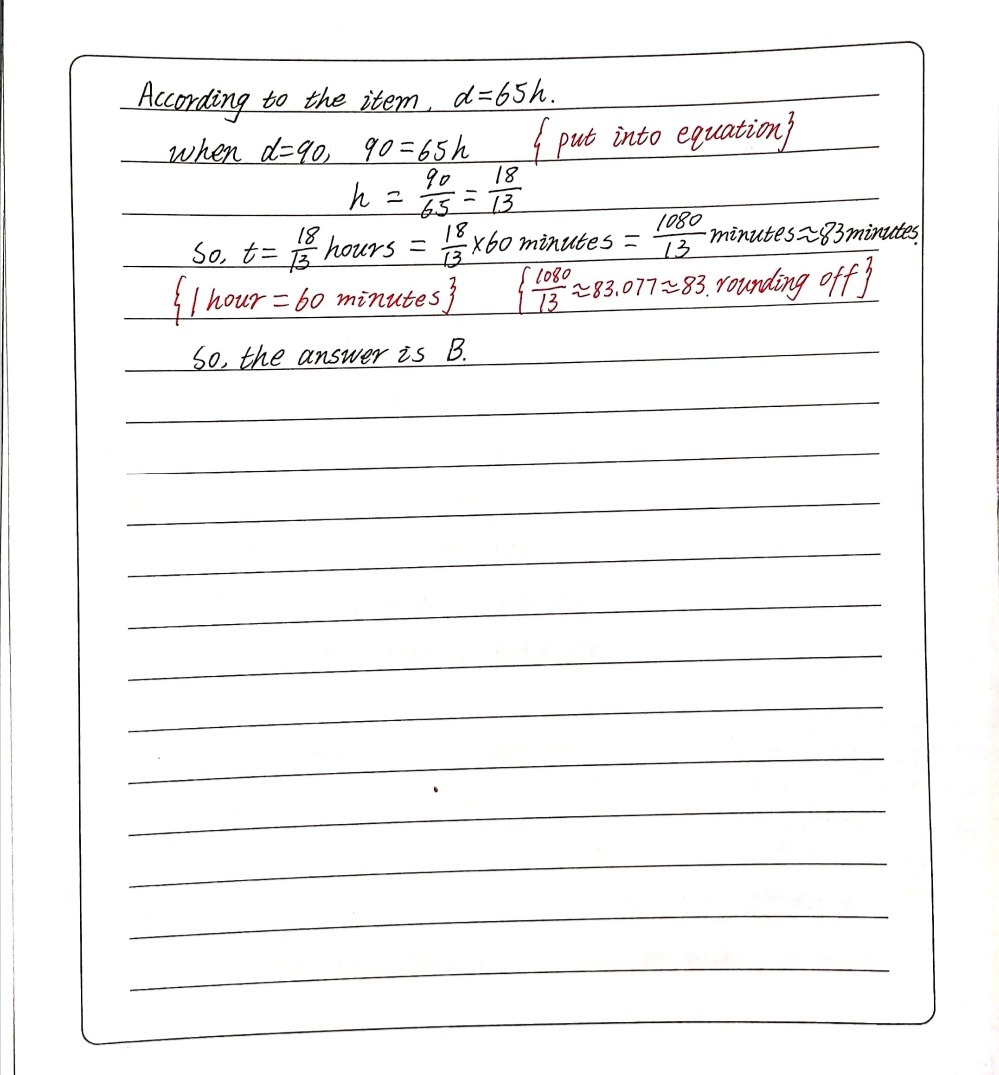 According to the item, d=65h.
when d=90, 90=65h { put into equation}
h = 90/65 = 18/13
So, t= 18/13 hours = 18/13 ×60 minutes = 1080/13 minutes≈83minutes.
{1 hour = 60 minutes} {1080/13 ≈83.077≈83. rounding off}
So, the answer is B.